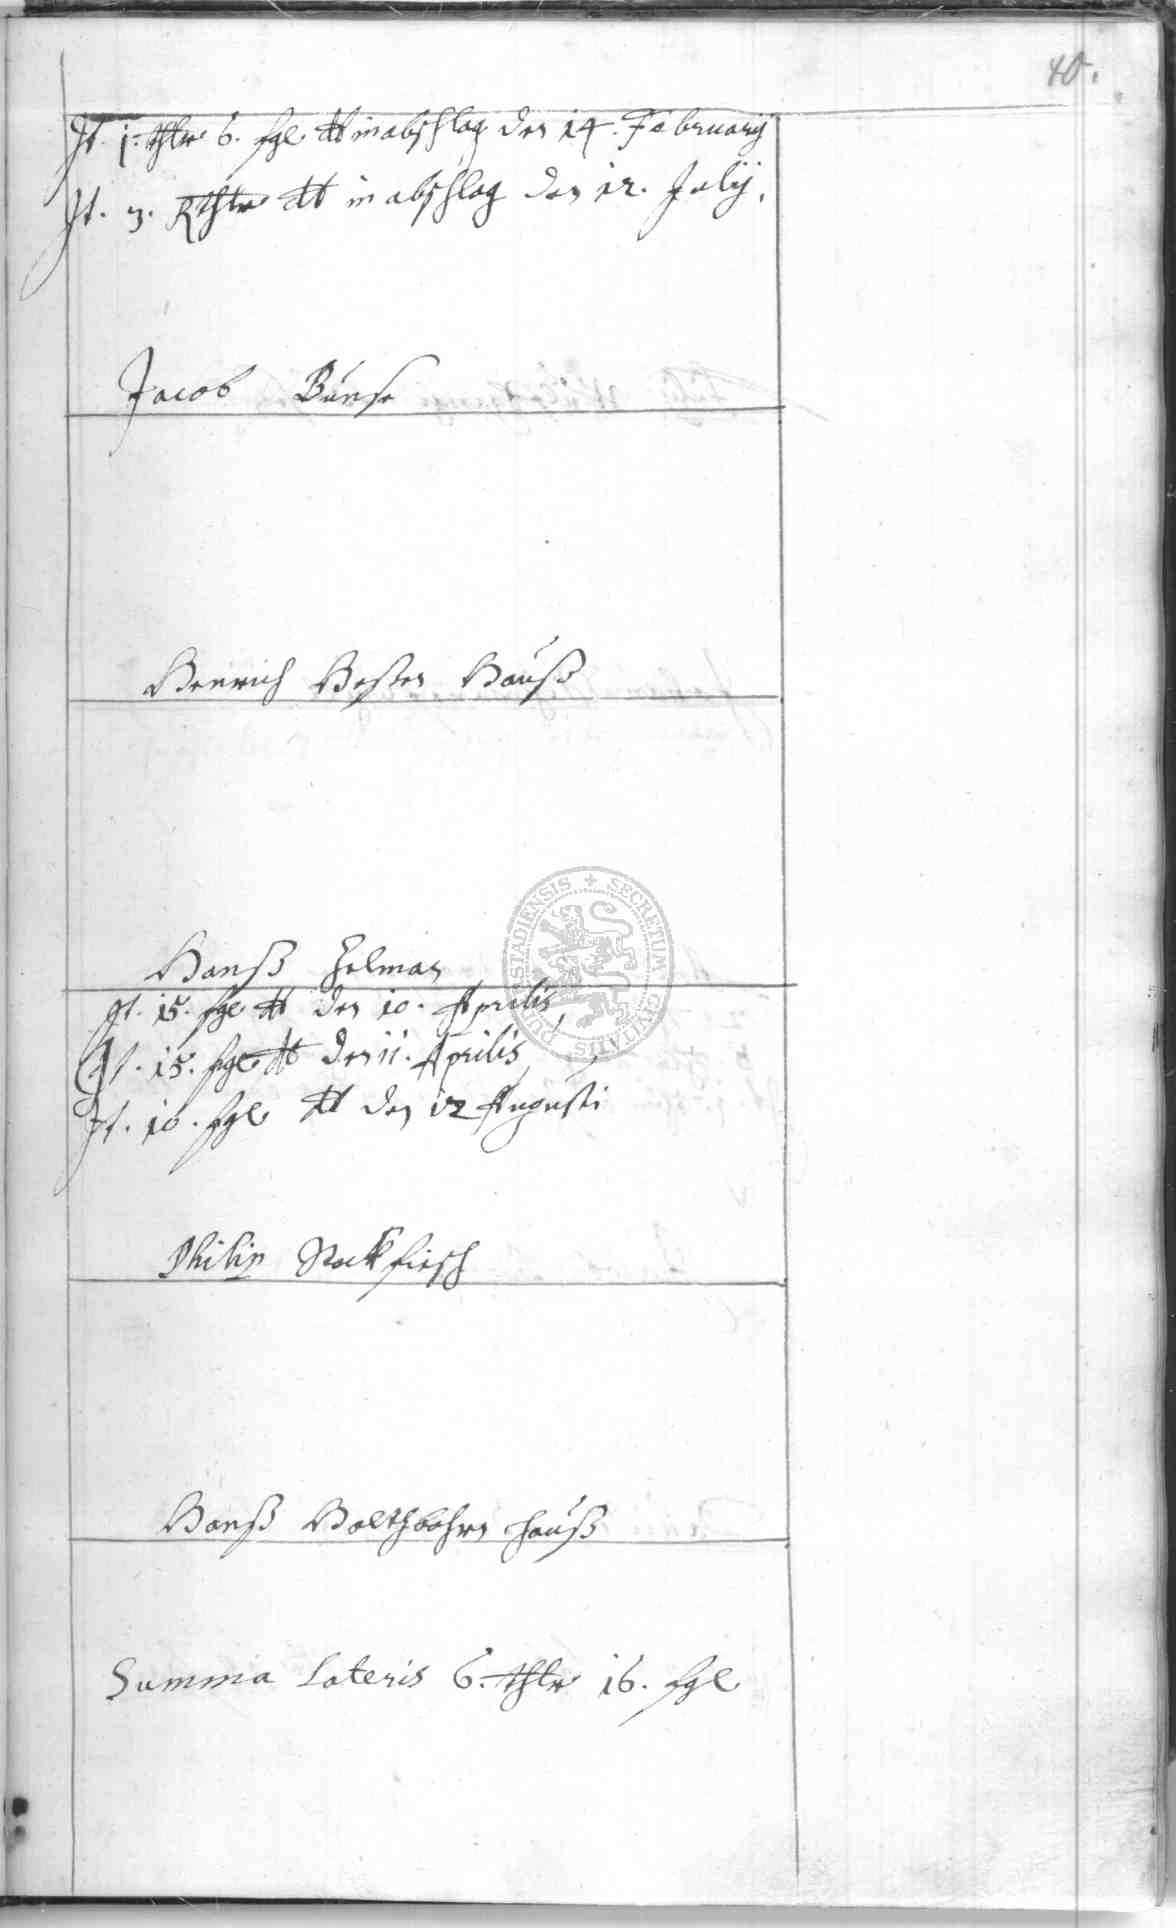 40.
It. 1. thlr 6. sgl dt in abschlag den 14. February
It. 3. Rthlr dt in abschlag den 12. July.
Jacob Bürse
Henrich Vesten Hauß
Hanß Helman
It. 15. sgl dt den 10. Aprilis
It. 15. sgl dt den 11. Aprilis
It. 10. sgl dt den 12 Augusti
Philip Stockfisch
Hanß Hauß
Summa Lateris 6. thlr 16. sgl
DURSTADIENSIS + SECRETUM CIVITATIS